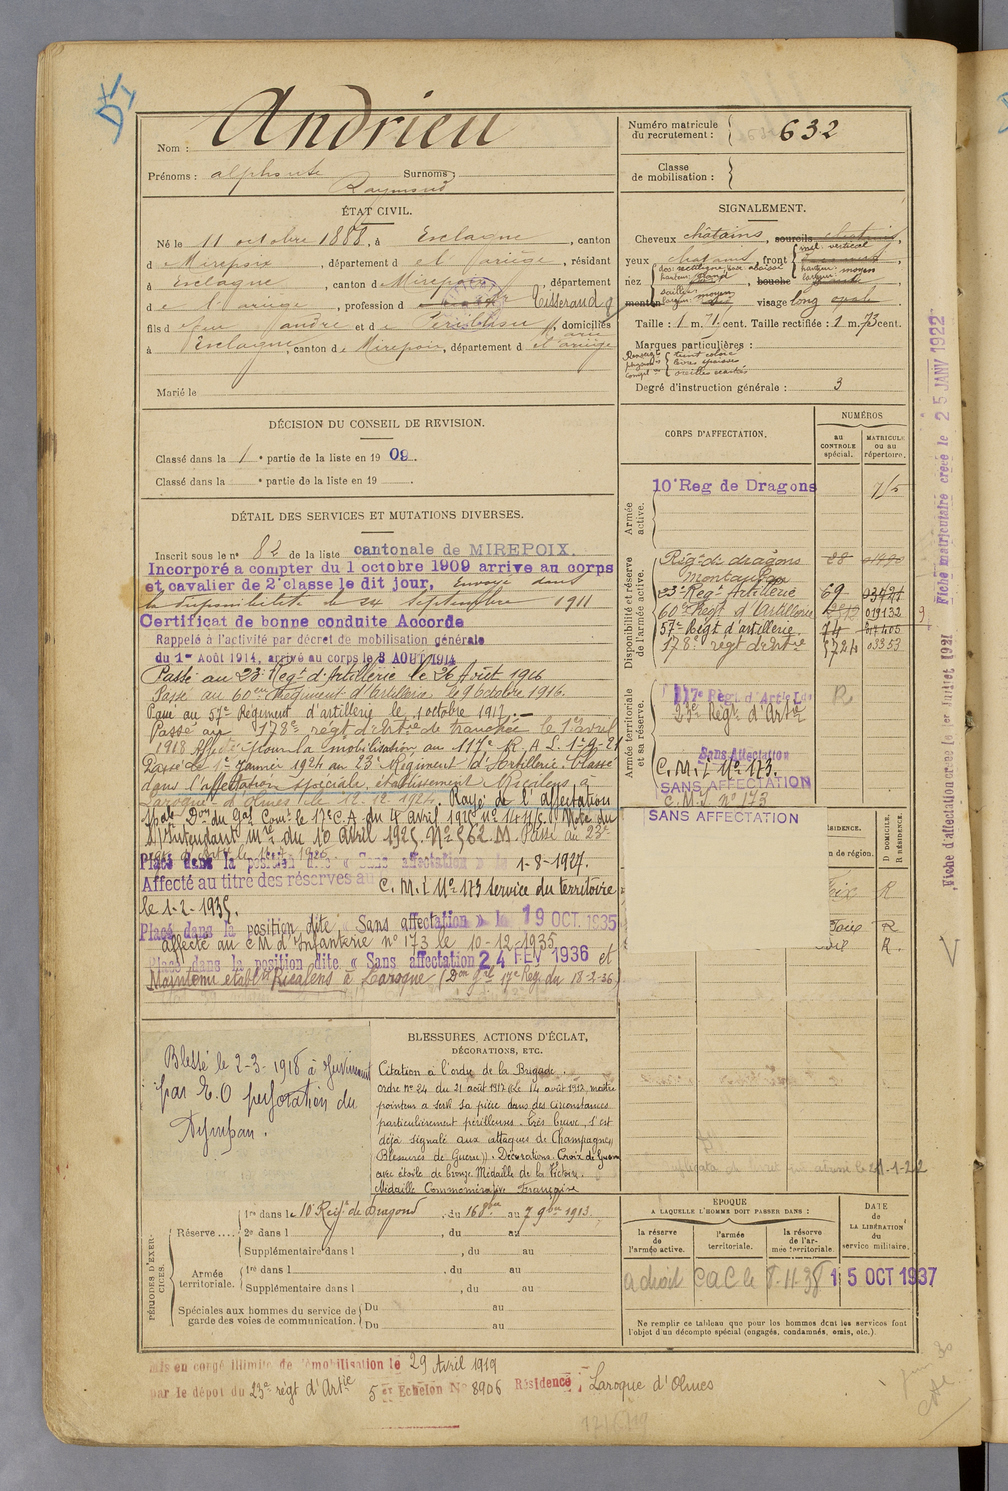 Nom : Andrieu
Prénoms : alphonse Surnoms
Raymond
ÉTAT CIVIL.
Né le 11 octobre 1888, à Esclagne, canton
d Mirepoix, département d el' ariège, résidant
à Esclagne, canton d Mirepoix, département
de l'ariège, profession d Tisserand
fils d feu andré et de , domiciliés
à Esclagne, canton de Mirepoix, département d el'ariège
Marié le
DÉCISION DU CONSEIL DE REVISION.
Classé dans la 1 e partie de la liste en 1909.
Classé dans la e partie de la liste en 19
DÉTAIL DES SERVICES ET MUTATIONS DIVERSES.
Inscrit sous le n° 82 de la liste cantonale de MIREPOIX.
Incorporé a compter du 1 octobre 1909 arrive au corps
et cavalier de 2e classe le dit jour, Envoyé dans
la disponibilité le 24 septembre 1911
Certificat de bonne conduite Accorde
Rappelé à l'activité par décret de mobilisation générale
du 1er Août 1914, arrivé au corps le 3 AOUT 1914
Passé au 23e Regt d'Artillerie le 26 Août 1916
Passé au 60eme Régiment d'Artillerie le 9 Octobre 1916.
Passé au 57e Régiment d'artillerie le 1 octobre 1917.
Passé au 178e régt d'Artie de tranchée le 1er avril
1918 Affecté pour la mobilisation au 117e R.A.L. 1-9-21
Passé le 1er Janvier 1924 au 23e Régiment d'Artillerie. Classé
dans l'affectation spéciale, établissement Ricalens, à
Laroque d'Olmes le 12.12.1924. Rayé de l'affectation
Spale Don du Gal Comt le 17e C.A du 4 avril 1925 n° 1411/5. Note du
S/Intendant Mre du 10 avril 1925. N° 562.M. Passé au 23e
Placé dans la position dite « Sans affectation » le 1-8-1927.
Affecté au titre des réserves au C.M.I N° 173 service du territoire
le 1-2-1935.
Placé dans la position dite « Sans affectation » le 19 OCT. 1935
affecté au C M d'Infanterie n° 173 le 10-12-1935
Placé dans la position dite « Sans affectation 24 FEV 1936 et
Maintenu etablt Ricalens à Laroque (Don Gle 17e Reg. du 18-2-36)
Blessé le 2-3-1918 à
par E.O perforation du
Tympan.
BLESSURES, ACTIONS D'ÉCLAT,
DÉCORATIONS, ETC.
Citation a l'ordre de la Brigade.
ordre n° 24 du 21 août 1917 (Le 14 août 1917, maître
pointeur a servi sa pièce dans des circonstances
particulièrement périlleuses. Très brave, s'est
déjà signalé aux attaques de Champagne)
Blessures de Guerre. Décorations. Croix de Guerre
avec étoile de bronze. Médaille de la Victoire.
Médaille Commémorative Française
PÉRIODES D'EXERCICES.
Réserve
1re dans le 10e Reigt de Dragons, du 16 8bre au 7 9bre 1913.
2e dans l , du au
Supplémentaire dans l , du au
Armée territoriale.
1re dans l , du au
Supplémentaire dans l , du au
Spéciales aux hommes du service de
garde des voies de communication.
Du au
Du au
Mis en congé illimité de démobilisation le 29 Avril 1919
par le dépot du 23e régt d'Artie 5e Echelon N° 8906 Résidence : Laroque d'Olmes
Numéro matricule
du recrutement : 632
Classe
de mobilisation :
SIGNALEMENT.
Cheveux châtains, sourcils
yeux chatains, front
nez , bouche
menton visage long
Taille : 1 m. 71 cent. Taille rectifiée : 1 m. 73 cent.
Marques particulières :
teint coloré
lèvres épaisses
oreilles écartées
Degré d'instruction générale : 3
CORPS D'AFFECTATION.
NUMÉROS
AU CONTROLE spécial.
MATRICULE ou au répertoire.
Armée active.
10e Reg de Dragons
Disponibilité et réserve de l'armée active.
Régt de dragons 28
Montauban
23e Regt Artillerie 69
60e Regt d'Artillerie 019132
57e Régt d'artillerie. 74
178e régt d'Artie 5724 03353
Armée territoriale et sa réserve.
117e Régt. d'Artie Lde R
23e Régt. d'Artie
Sans Affectation
C.M.I N° 173.
SANS AFFECTATION
C.M.I n° 173
SANS AFFECTATION
RÉSIDENCE.
D. DOMICILE.
R. RÉSIDENCE.
Foix R
Foix R
Foix R.
ÉPOQUE
A LAQUELLE L'HOMME DOIT PASSER DANS :
la réserve de l'armée active.
l'armée territoriale.
la réserve de l'armée territoriale.
DATE de LA LIBÉRATION du service militaire.
a droit CAC le 8-11-38 15 OCT 1937
Ne remplir ce tableau que pour les hommes dont les services font
l'objet d'un décompte spécial (engagés, condamnés, omis, etc.)
Fiche d'affectation créée le 1er Juillet 1921 Fiche matriculaire créée le 25 JANV 1922